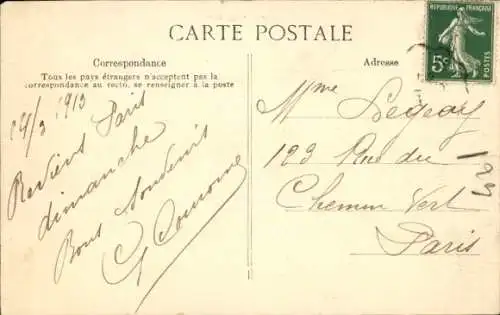 CARTE POSTALE
RÉPUBLIQUE FRANÇAISE
5c
Correspondance
Tous les pays étrangers n'acceptent pas la
correspondance au recto, se renseigner à la poste
Adresse
/3 1913
Reviens Paris
dimanche
Bons Souvenirs
Mme
123 Rue du
Chemin Vert
Paris
123